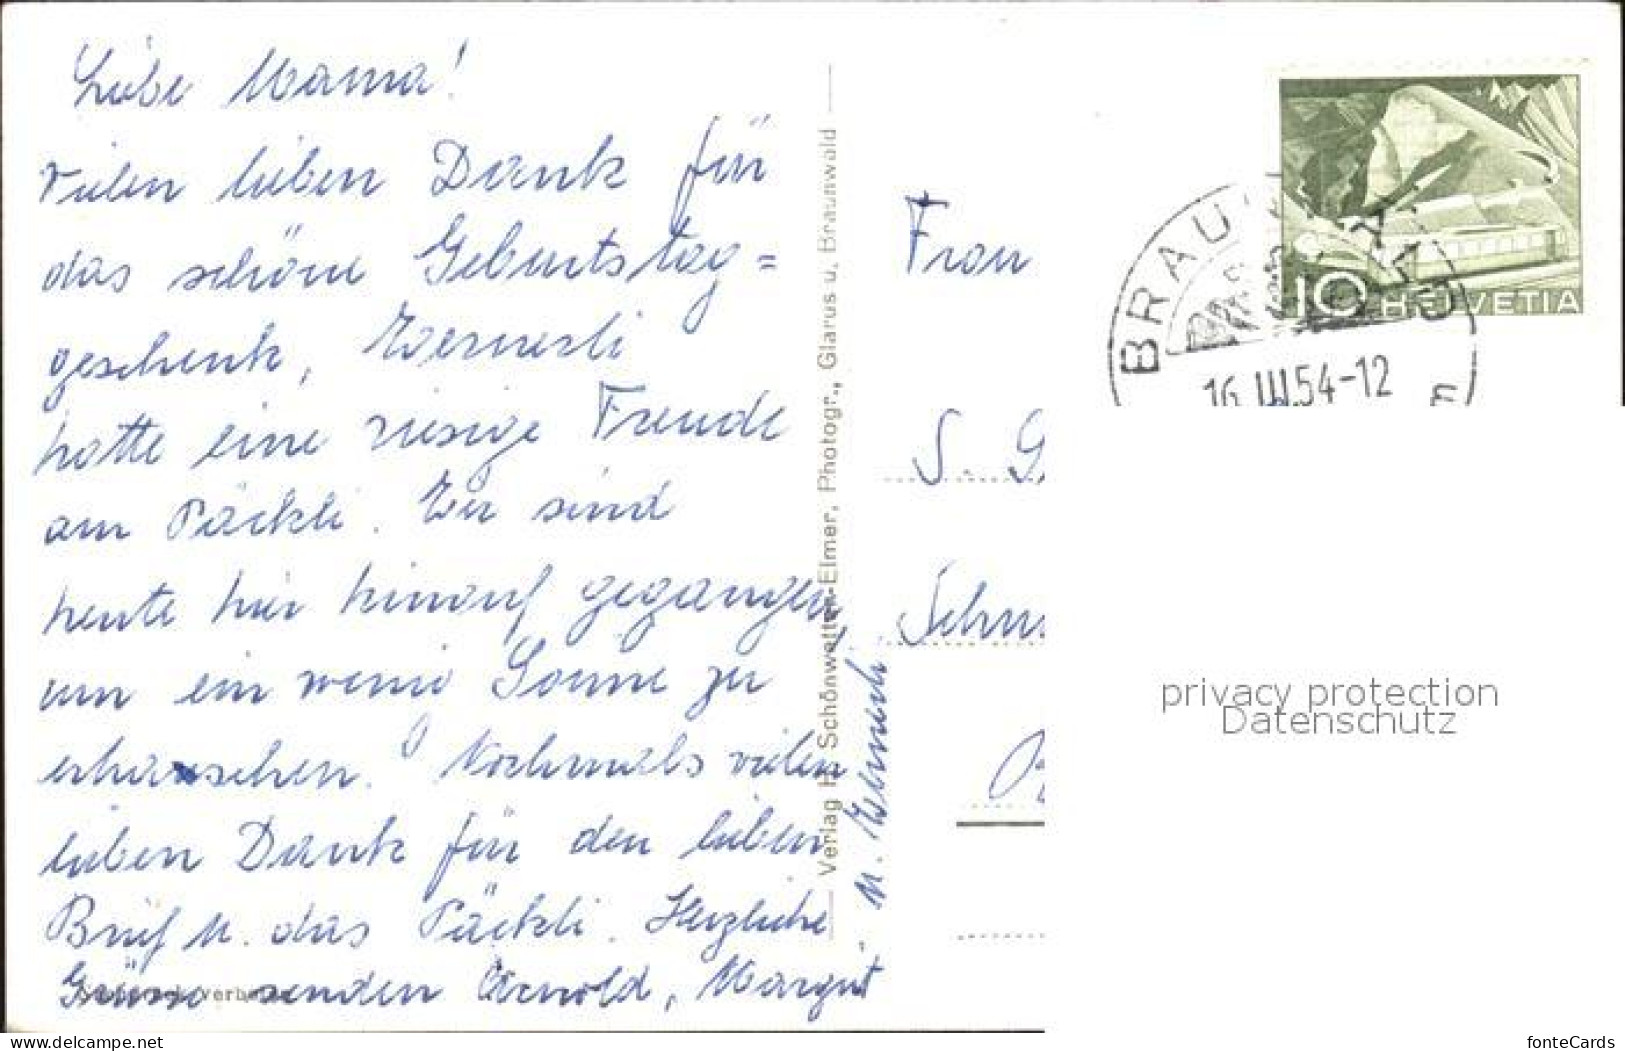 Liebe Mama!
Vielen lieben Dank für
das schöne Geburtstag=
geschenk, Wernerli
hatte eine riesige Freude
am Päckli. Wir sind
heute hier hinauf gegangen,
um ein wenig Sonne zu
erhaschen. Nochmals vielen
lieben Dank für den lieben
Brief u. das Päckli. Herzliche
Grüsse senden Arnold, Margrit
u. Wernerli
Verlag H. Schönwetter-Elmer, Photogr., Glarus u. Braunwald
Frau
S. G
Schu
HELVETIA
10
BRAU
16.III.54-12
privacy protection
Datenschutz
www.delcampe.net
fonteCards